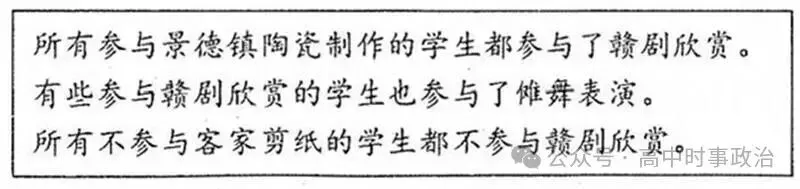 所有参与景德镇陶瓷制作的学生都参与了赣剧欣赏。
有些参与赣剧欣赏的学生也参与了傩舞表演。
所有不参与客家剪纸的学生都不参与赣剧欣赏。
公众号·高中时事政治